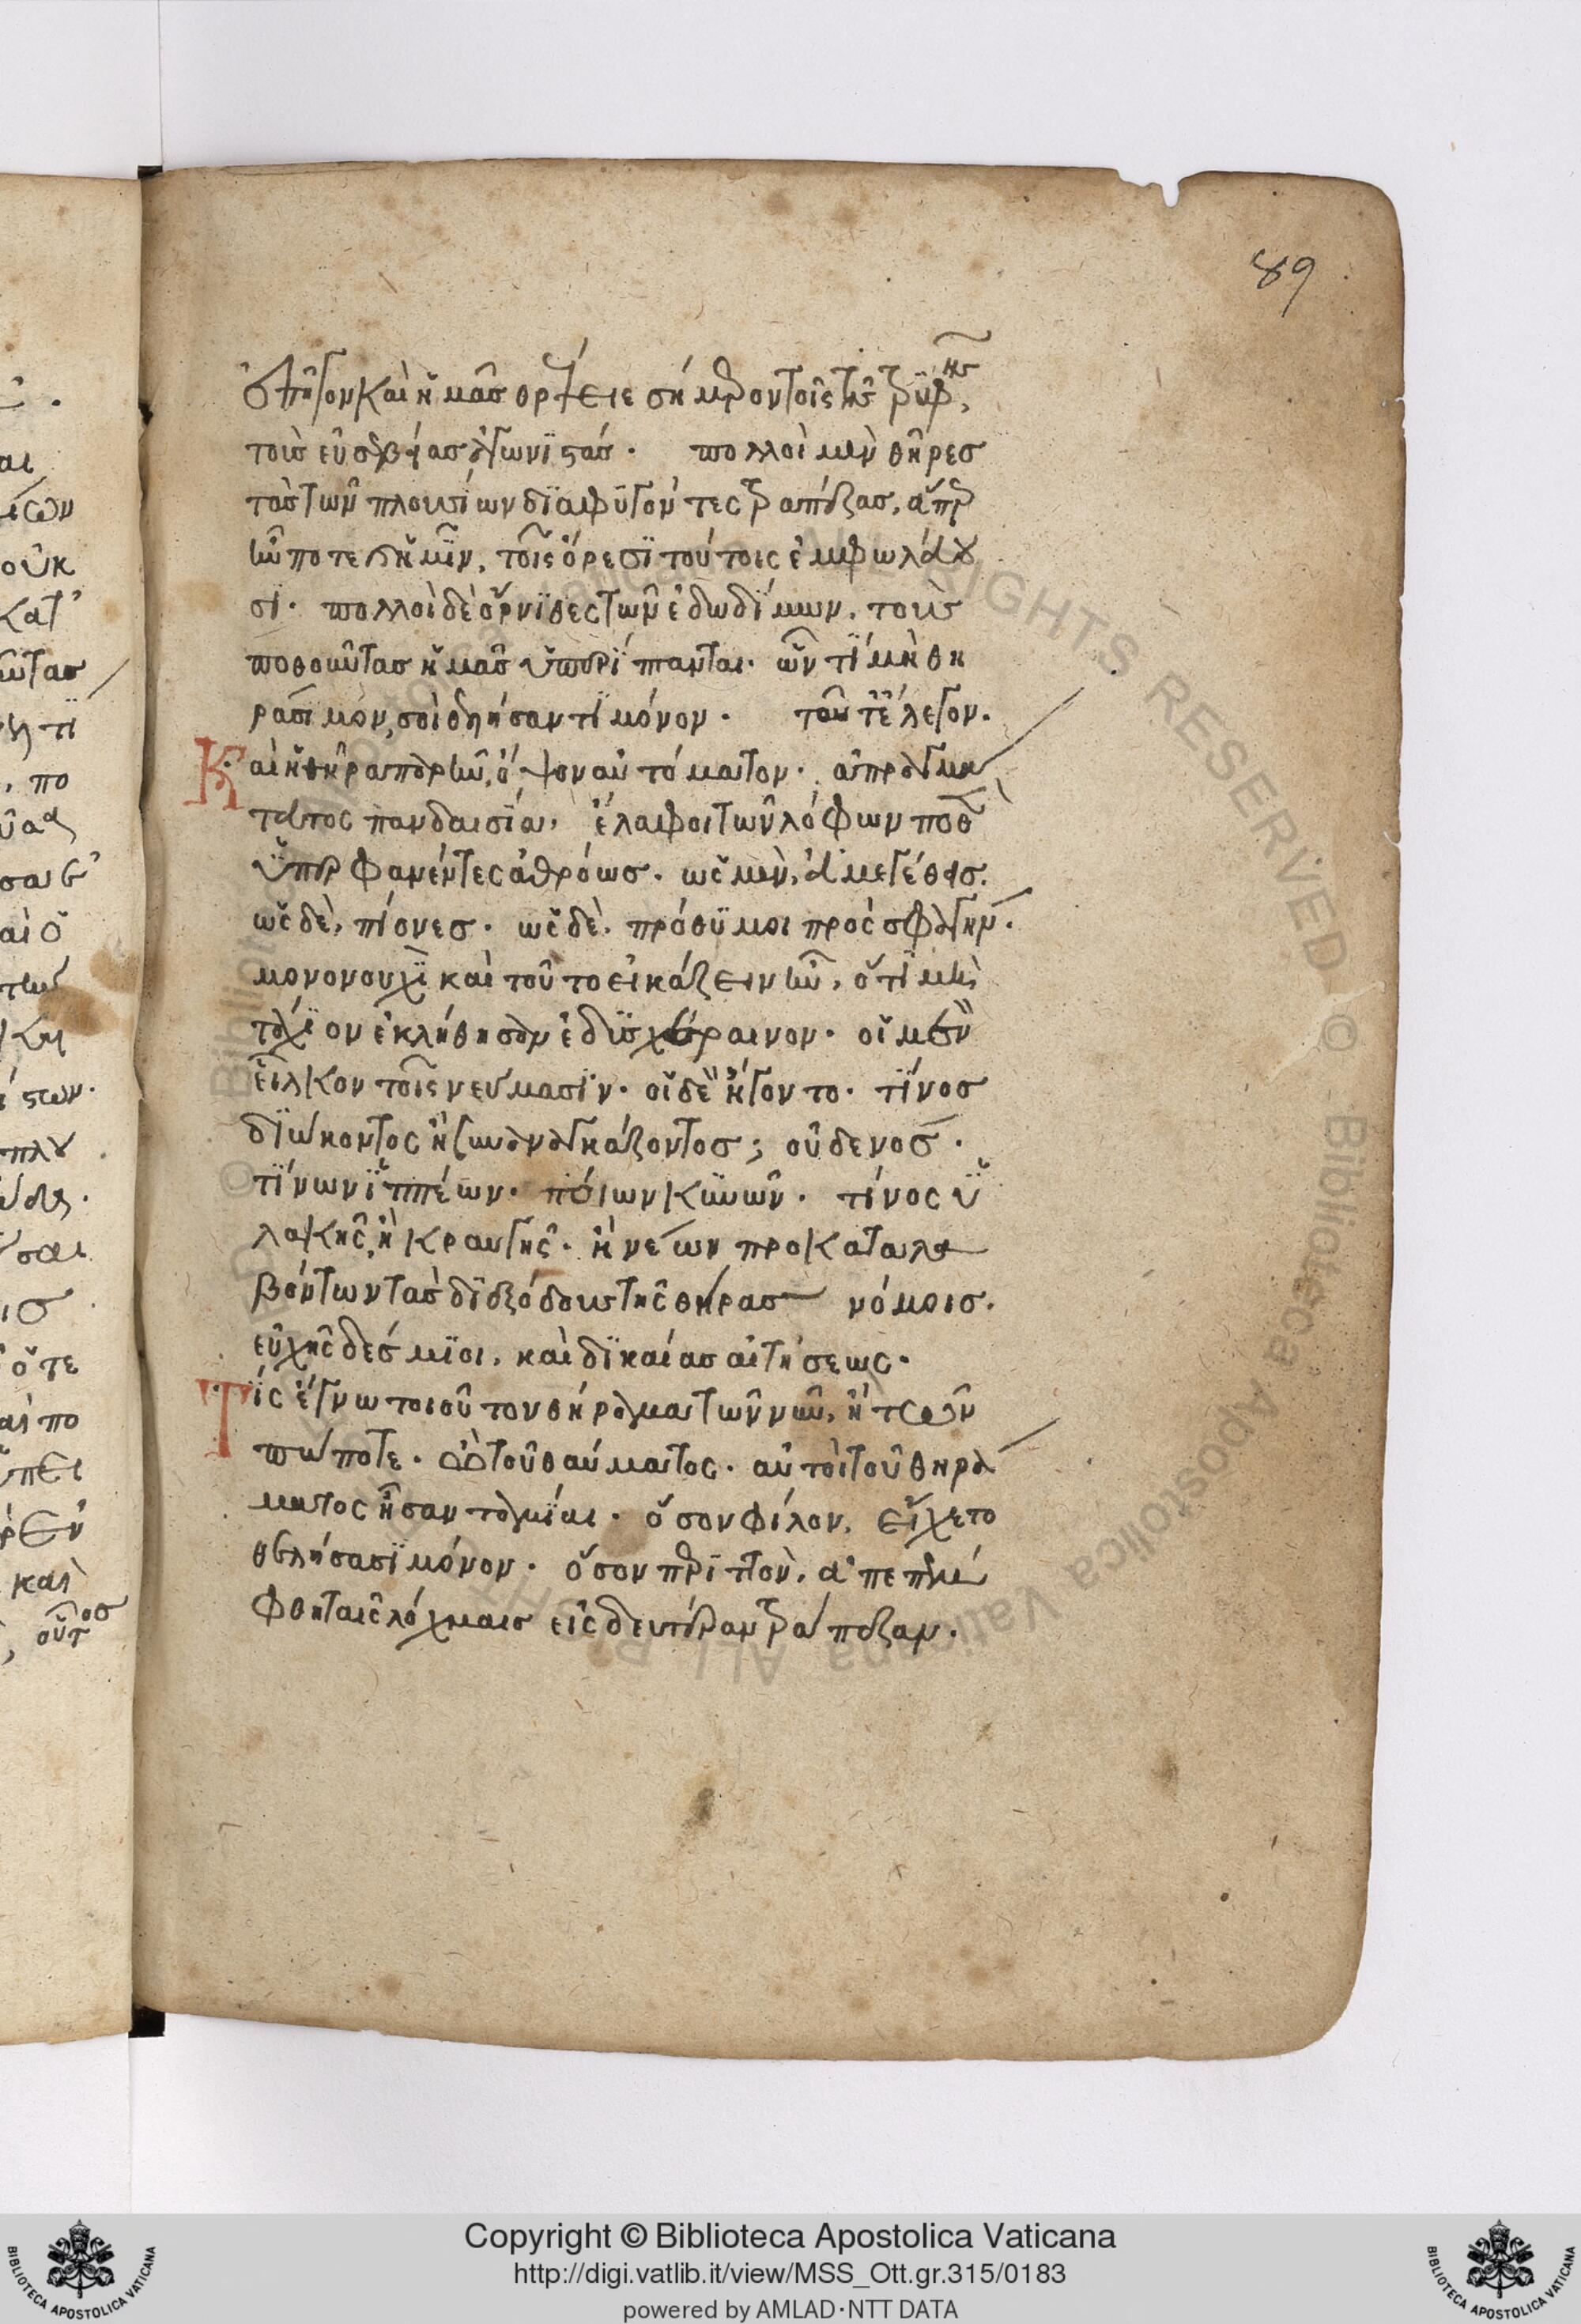 89
στῆσον καὶ ἡμᾶς ὀρέξειε σήμερον τοῖς τῆς τρυφῆς,
τοὺς εὐσεβείας ἀγωνιστάς. πολλοὶ μὲν θῆρες
τὰς τῶν πλουσίων διαφυγόντες τραπέζας,
ποτε ἡμῖν, τοῖς ὄρεσι τούτοις ἐμφωλεύου
σι. πολλοὶ δὲ ὄρνιθες τῶν ἐδωδίμων, τοὺς
ποθοῦντας ἡμᾶς ὑπερίπτανται. ὧν τί μὴ θη
ράσιμον, σοὶ δεήσαντι μόνον. τοῦτ' ἔλεγον.
Καὶ ἡ θήρα παρῆν, ὄψον αὐτόματον. ἀπραγμά
τευτος πανδαισία. ἔλαφοι τῶν λόφων ποθὲν
ὑπερφανέντες ἀθρόως. ὡς μὲν, εὐμεγέθεις.
ὡς δὲ, πίονες. ὡς δὲ, πρόθυμοι πρὸς σφαγήν.
μονονουχὶ καὶ τοῦτο εἰκάζειν ἦν, ὅτι μὴ
τάχιον ἐκλήθησαν ἐδυσχέραινον. οἱ μὲν
εἷλκον τοῖς νεύμασιν. οἱ δὲ ἥγοντο. τίνος
διώκοντος ἢ συναναγκάζοντος; οὐδενός.
τίνων ἱππέων. ποίων κυνῶν. τίνος ὑ
λακῆς, ἢ κραυγῆς. ἢ νέων προκαταλα
βόντων τὰς διεξόδους τῆς θήρας νόμοις.
εὐχῆς δέσμιοι, καὶ δικαίας αἰτήσεως.
Τίς ἔγνω τοιοῦτον θήραμα τῶν νῦν, ἢ τῶν
πώποτε. ὢ τοῦ θαύματος. αὐτοὶ τοῦ θηρά
ματος ἦσαν ταμίαι. ὅσον φίλον, εἴχετο
θελήσασι μόνον. ὅσον περιττὸν, ἀπεπέμ
φθη ταῖς λόχμαις εἰς δευτέραν τράπεζαν.
Copyright © Biblioteca Apostolica Vaticana
http://digi.vatlib.it/view/MSS_Ott.gr.315/0183
powered by AMLAD·NTT DATA
BIBLIOTECA APOSTOLICA VATICANA
BIBLIOTECA APOSTOLICA VATICANA